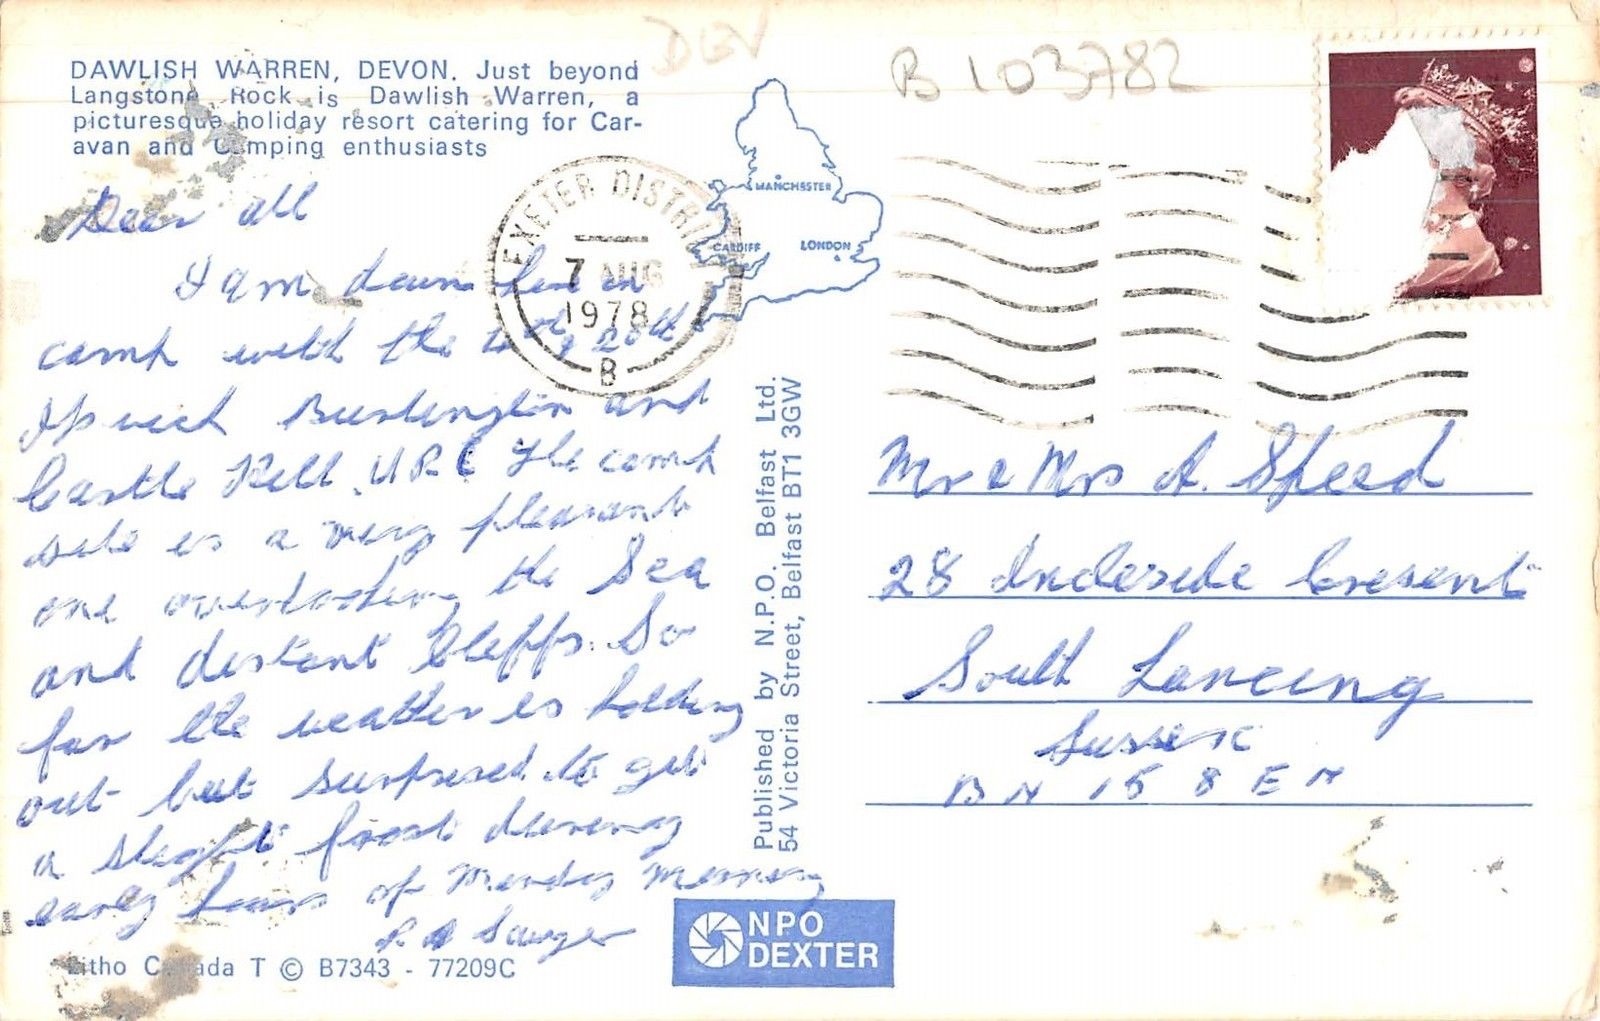 DEV
B 103782
DAWLISH WARREN, DEVON. Just beyond
Langstone Rock is Dawlish Warren, a
picturesque holiday resort catering for Car-
avan and Camping enthusiasts
EXETER DISTRI
7 AUG
1978
B
MANCHESTER
CARDIFF LONDON
Dear all
I am down here in
camp with the 20th
Ipswich Burlington and
Castle Hill U.R.C The camp
site is a very pleasant
one overlooking the Sea
and distant Cliffs. So
far the weather is holding
out but surprised to get
a slight frost during
early hours of Monday morning
Published by N.P.O. Belfast Ltd.
54 Victoria Street, Belfast BT1 3GW
Mr & Mrs A. Speed
28 Crescent
South Lancing
Sussex
BN 15 8 E N
NPO
DEXTER
Litho Canada T © B7343 - 77209C